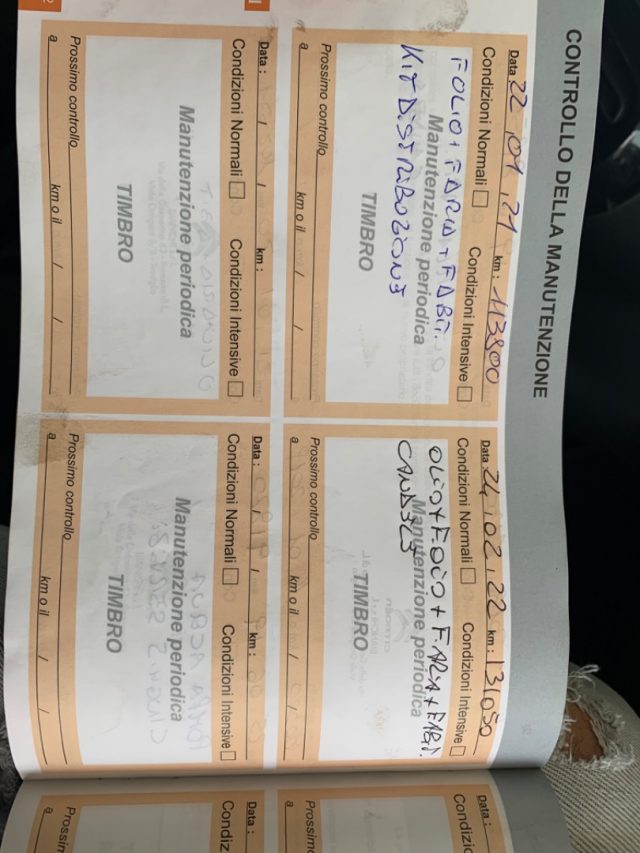 CONTROLLO DELLA MANUTENZIONE
Data 22, 01, 21 km : 113800
Condizioni Normali Condizioni Intensive
FOLIO + FARIA + FABIT.
Manutenzione periodica
KIT DISTRIBUZIONE
TIMBRO
Prossimo controllo
a km o il / /
Data 24, 02, 22 km : 131050
Condizioni Normali Condizioni Intensive
OLIO + FOLIO + FARIA + FABI.
CANDELE
Manutenzione periodica
TIMBRO
Prossimo controllo
a km o il / /
Data : / / km :
Condizioni Normali Condizioni Intensive
Manutenzione periodica
TIMBRO
Prossimo controllo
a km o il / /
Data : / / km :
Condizioni Normali Condizioni Intensive
Manutenzione periodica
TIMBRO
Prossimo controllo
a km o il / /
Data :
Condiz
Prossim
a
Data :
Condiz
Prossim
a